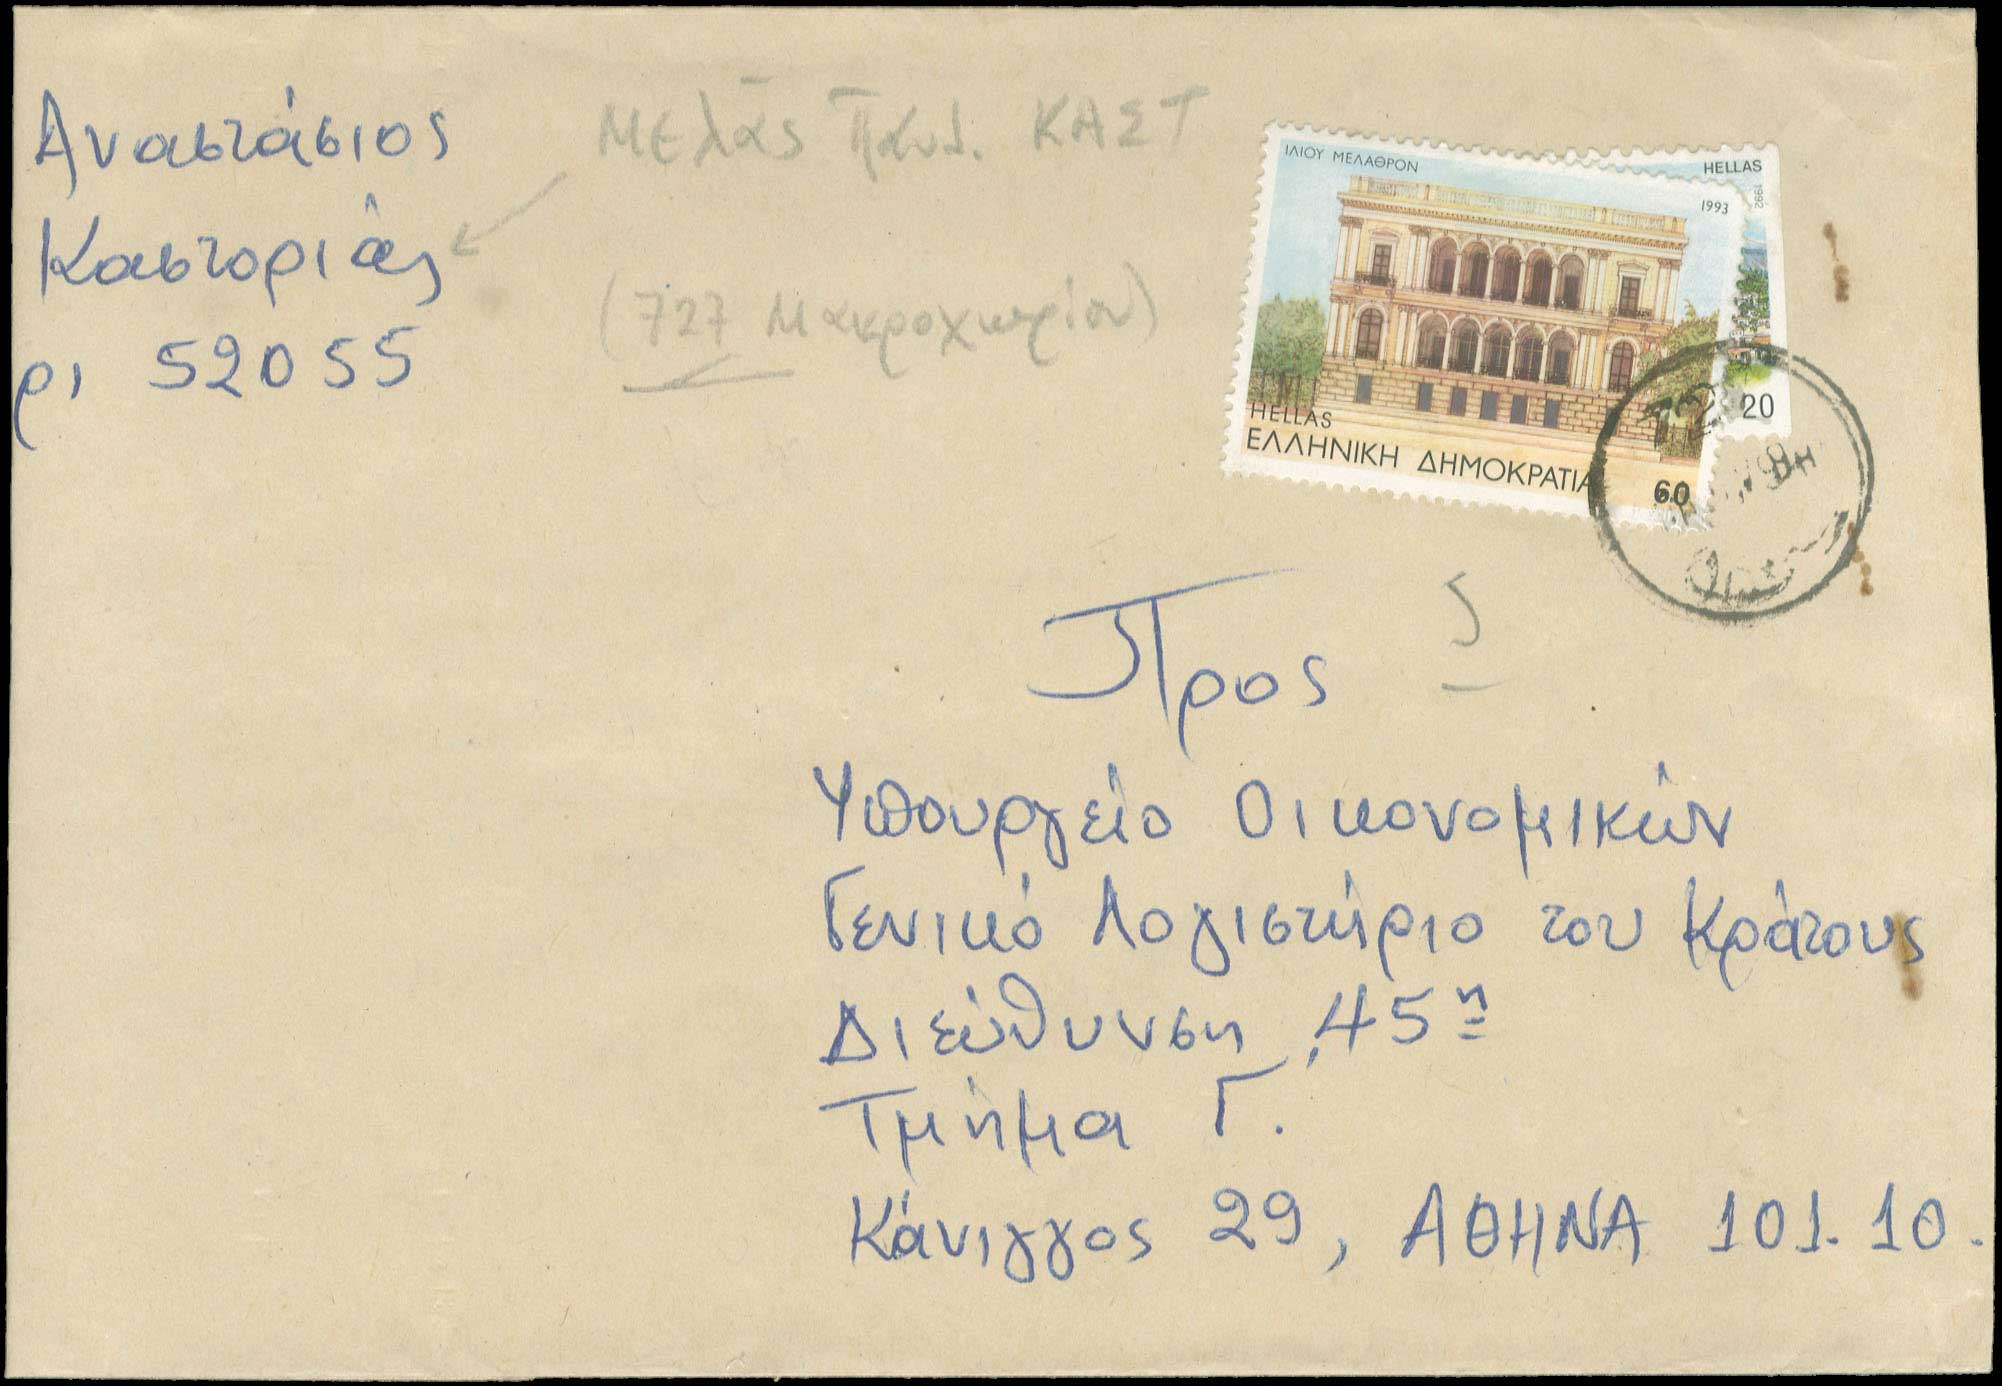 Αναστάσιος
Καστοριάς
ρι 52055
Μελάς Παυλ. ΚΑΣΤ
(727 Μακροχωρίου)
ΙΛΙΟΥ ΜΕΛΑΘΡΟΝ
1993
HELLAS
ΕΛΛΗΝΙΚΗ ΔΗΜΟΚΡΑΤΙΑ
60
HELLAS
1992
20
Προς
Υπουργείο Οικονομικών
Γενικό Λογιστήριο του Κράτους
Διεύθυνση 45η
Τμήμα Γ.
Κάνιγγος 29, ΑΘΗΝΑ 101.10.